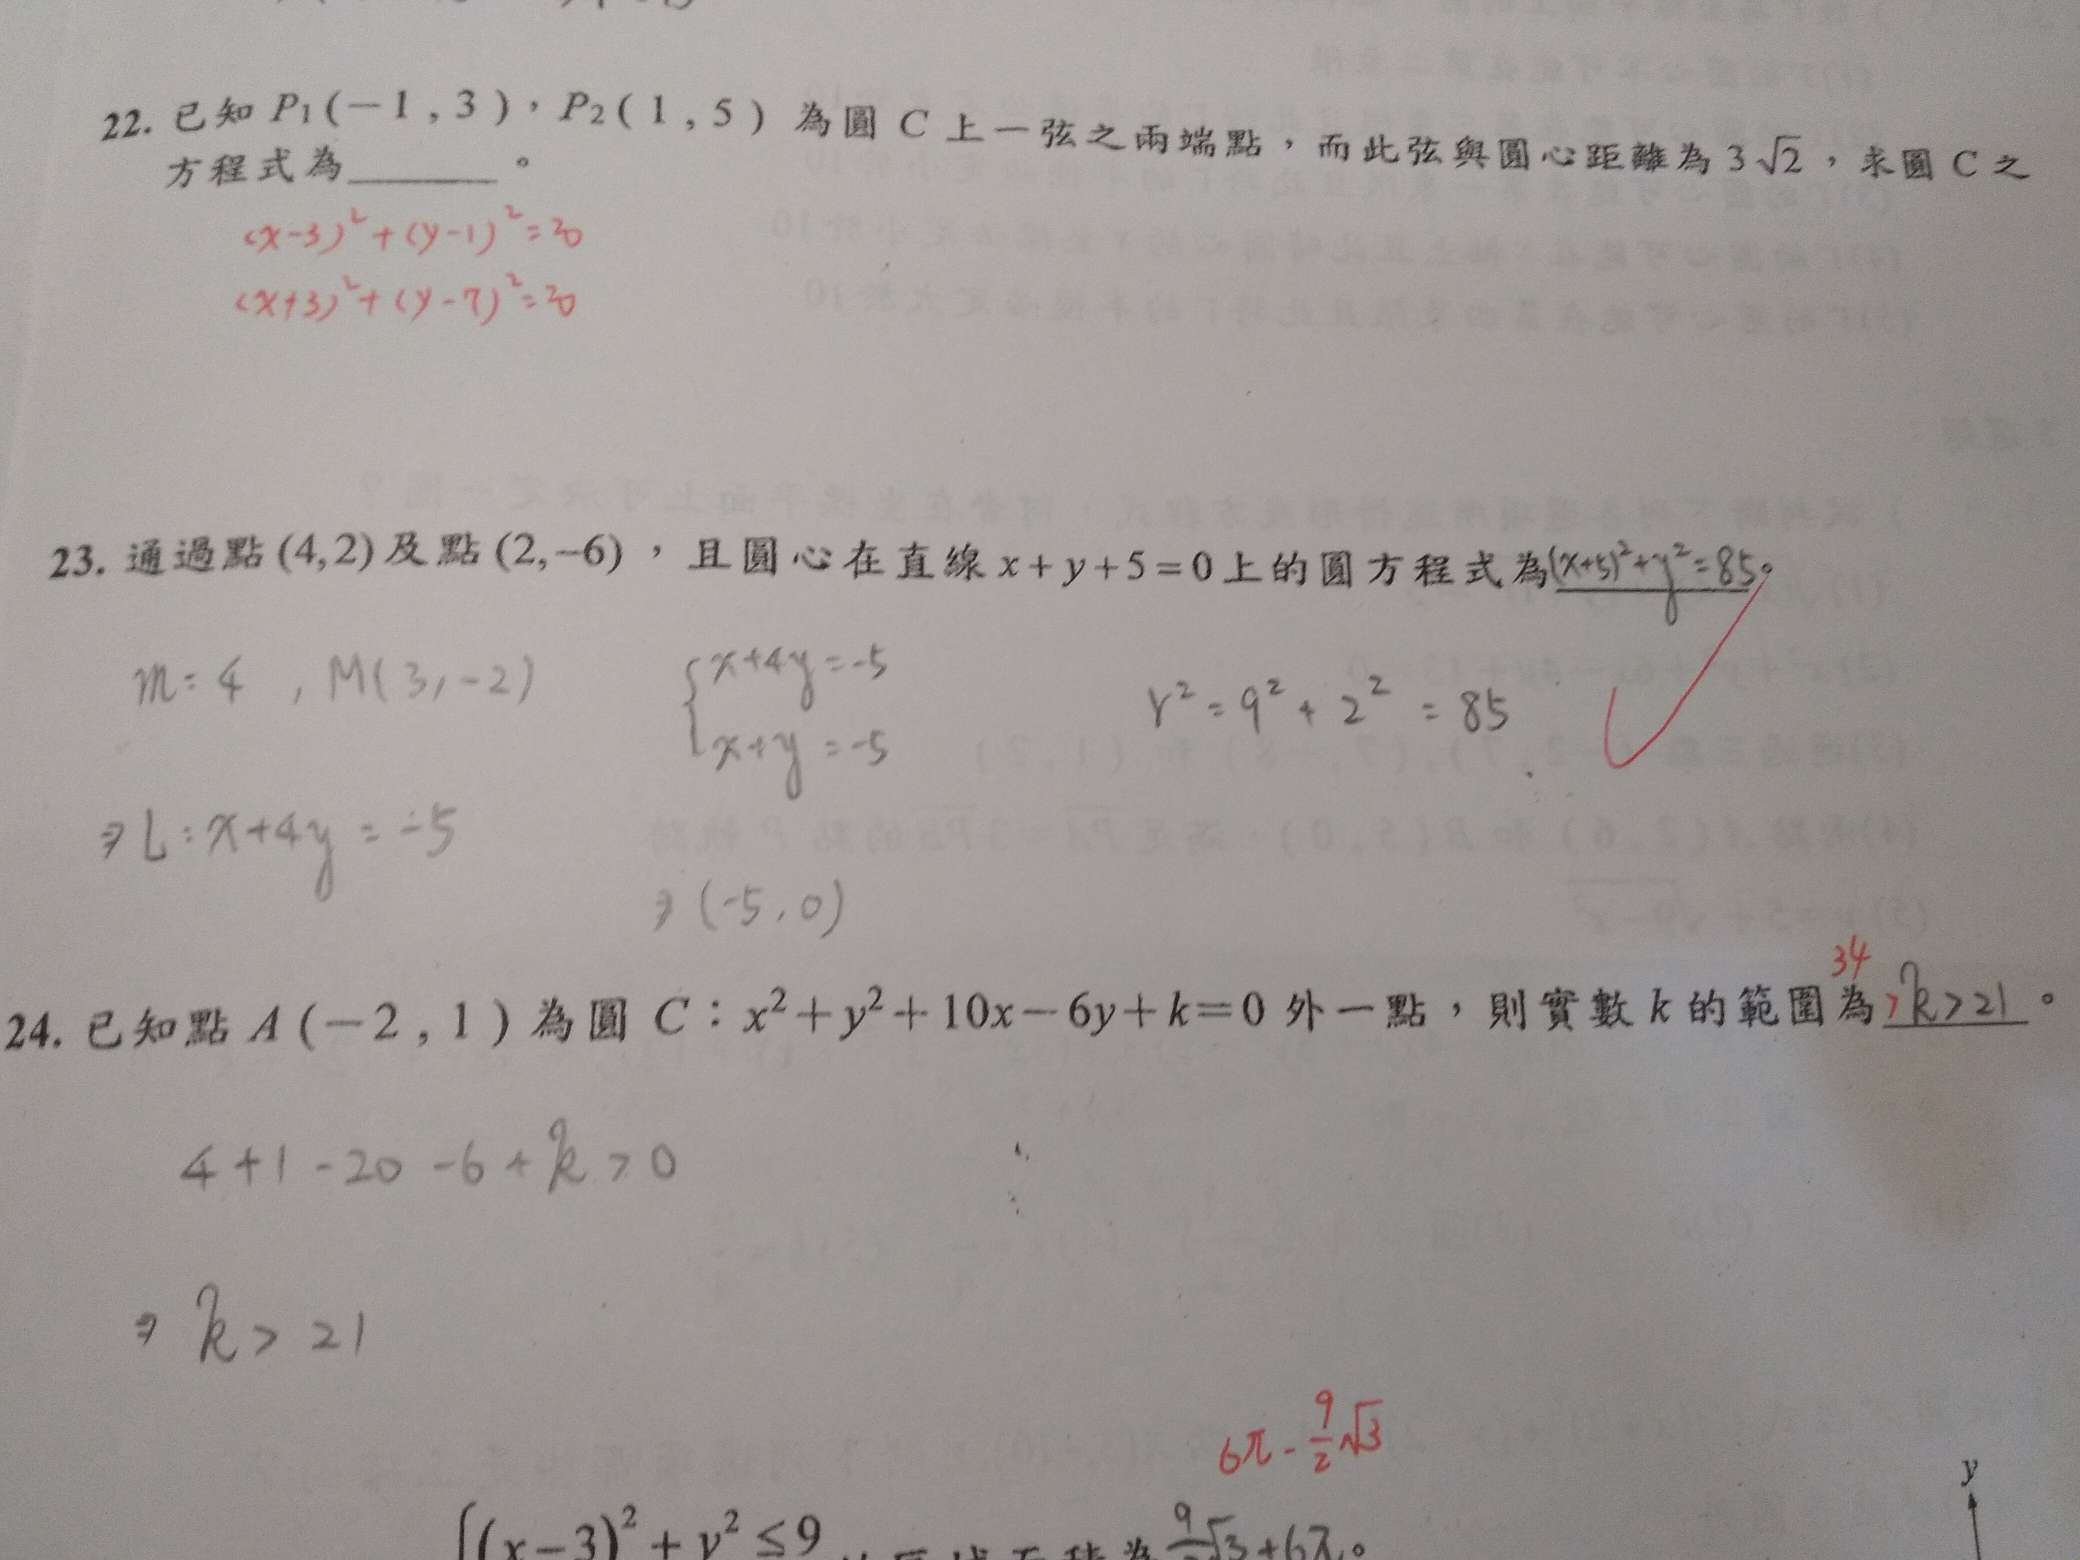 22. 已知 P₁(－1 , 3)，P₂( 1 , 5 ) 為圓 C 上一弦之兩端點，而此弦與圓心距離為 3√2，求圓 C 之
方程式為______。
(x-3)²+(y-1)²=20
(x+3)²+(y-7)²=20
23. 通過點(4,2)及點(2,−6)，且圓心在直線 x+y+5=0上的圓方程式為(x+5)²+y²=85。
m=4 , M(3,-2)
{x+4y=-5
x+y=-5
r²=9²+2²=85
⇒L:x+4y=-5
⇒(-5,0)
34
24. 已知點 A (－2 , 1 ) 為圓 C：x²＋y²＋10x－6y＋k＝0 外一點，則實數 k 的範圍為>k>21。
4+1-20-6+k>0
⇒ k>21
6π-9/2√3
y
(x−3)²+y²≤9